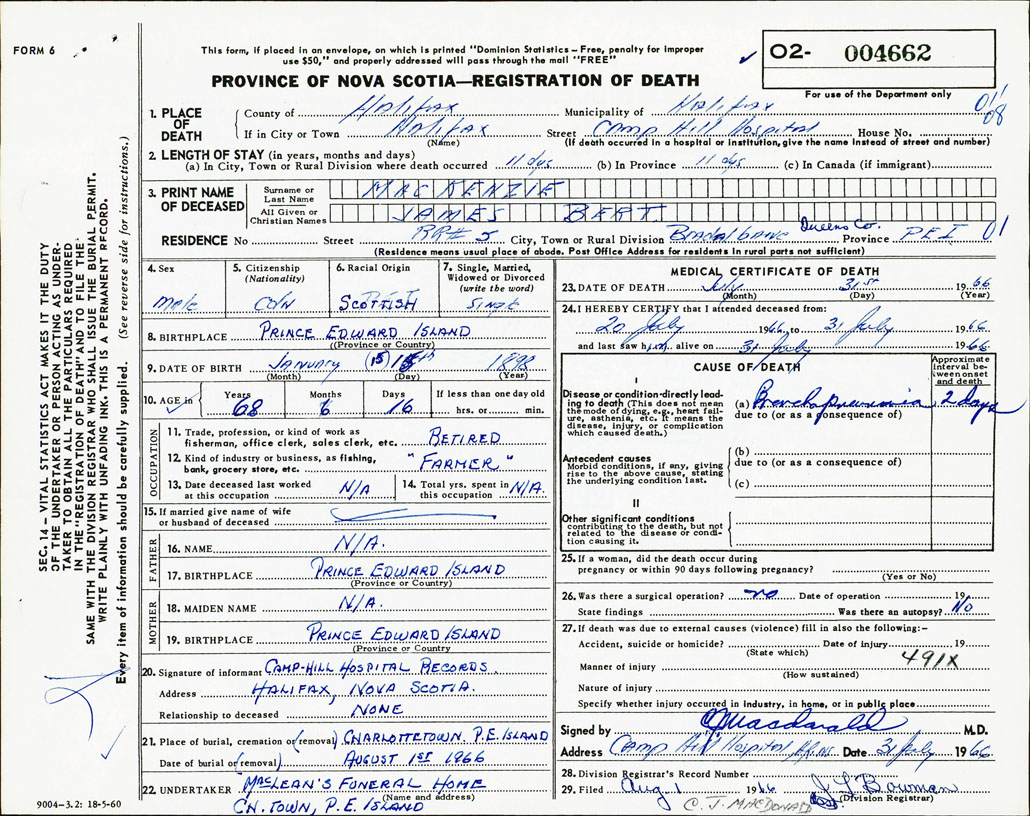 FORM 6
This form, if placed in an envelope, on which is printed "Dominion Statistics – Free, penalty for improper
use $50," and properly addressed will pass through the mail "FREE"
PROVINCE OF NOVA SCOTIA—REGISTRATION OF DEATH
✓ O2- 004662
For use of the Department only
1. PLACE OF DEATH
County of Halifax Municipality of Halifax 01 08
If in City or Town Halifax Street Camp Hill Hospital House No.
(Name) (If death occurred in a hospital or institution, give the name instead of street and number)
2. LENGTH OF STAY (in years, months and days)
(a) In City, Town or Rural Division where death occurred 11 dys (b) In Province 11 dys (c) In Canada (if immigrant)
3. PRINT NAME OF DECEASED
Surname or Last Name MACKENZIE
All Given or Christian Names JAMES BERT
RESIDENCE No Street RR# 5 City, Town or Rural Division Queens Co. Province PEI 01
(Residence means usual place of abode. Post Office Address for residents in rural parts not sufficient)
4. Sex Male
5. Citizenship (Nationality) CDN
6. Racial Origin SCOTTISH
7. Single, Married, Widowed or Divorced (write the word) Single
8. BIRTHPLACE PRINCE EDWARD ISLAND
(Province or Country)
9. DATE OF BIRTH JANUARY (15) 15th 1898
(Month) (Day) (Year)
10. AGE in Years Months Days If less than one day old
✓ 68 6 16 hrs. or min.
OCCUPATION
11. Trade, profession, or kind of work as
fisherman, office clerk, sales clerk, etc. RETIRED
12. Kind of industry or business, as fishing,
bank, grocery store, etc. "FARMER"
13. Date deceased last worked
at this occupation N/A
14. Total yrs. spent in
this occupation N/A.
15. If married give name of wife
or husband of deceased
FATHER
16. NAME N/A.
17. BIRTHPLACE PRINCE EDWARD ISLAND
(Province or Country)
MOTHER
18. MAIDEN NAME N/A.
19. BIRTHPLACE PRINCE EDWARD ISLAND
(Province or Country
20. Signature of informant CAMP-HILL HOSPITAL RECORDS.
Address HALIFAX, NOVA SCOTIA.
Relationship to deceased NONE
21. Place of burial, cremation or (removal) CHARLOTTETOWN, P.E. ISLAND
Date of burial or (removal) AUGUST 1ST 1966
22. UNDERTAKER MACLEAN'S FUNERAL HOME
(Name and address)
CH. TOWN, P.E. ISLAND
9004-3.2: 18-5-60
MEDICAL CERTIFICATE OF DEATH
23. DATE OF DEATH July 31st 1966
(Month) (Day) (Year)
24. I HEREBY CERTIFY that I attended deceased from:
20 July 1966, to 31 July 1966
and last saw him alive on 31 July 1966
CAUSE OF DEATH
Approximate interval between onset and death
I
Disease or condition directly leading to death (This does not mean
the mode of dying, e.g., heart failure, asthenia, etc. It means the
disease, injury, or complication
which caused death.)
(a) Bronchopneumonia 2 days
due to (or as a consequence of)
Antecedent causes
Morbid conditions, if any, giving
rise to the above cause, stating
the underlying condition last.
(b)
due to (or as a consequence of)
(c)
II
Other significant conditions
contributing to the death, but not
related to the disease or condition causing it.
25. If a woman, did the death occur during
pregnancy or within 90 days following pregnancy?
(Yes or No)
26. Was there a surgical operation? no Date of operation 19
State findings Was there an autopsy? No
27. If death was due to external causes (violence) fill in also the following:–
Accident, suicide or homicide? Date of injury 19
(State which) 491X
Manner of injury
(How sustained)
Nature of injury
Specify whether injury occurred in industry, in home, or in public place
Signed by CJMacdonald M.D.
Address Camp Hill Hospital, Date 31 July 1966
28. Division Registrar's Record Number
29. Filed Aug 1 1966 Bowman
(Division Registrar)
C. J. MACDONALD
SEC. 14 – VITAL STATISTICS ACT MAKES IT THE DUTY
OF THE UNDERTAKER OR PERSON ACTING AS UNDERTAKER TO OBTAIN ALL THE PARTICULARS REQUIRED
IN THE "REGISTRATION OF DEATH" AND TO FILE THE
SAME WITH THE DIVISION REGISTRAR WHO SHALL ISSUE THE BURIAL PERMIT.
WRITE PLAINLY WITH UNFADING INK. THIS IS A PERMANENT RECORD.
Every item of information should be carefully supplied. (See reverse side for instructions.)